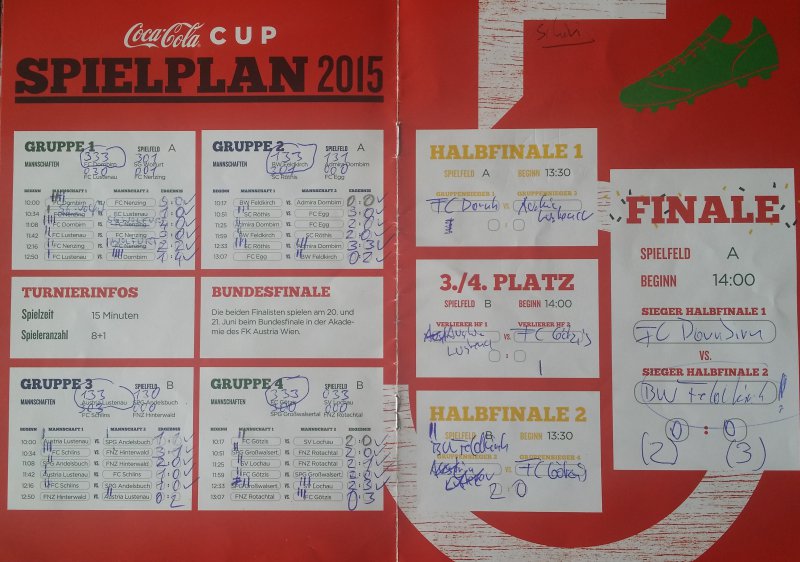 Coca-Cola CUP
SPIELPLAN 2015
GRUPPE 1 SPIELFELD A
MANNSCHAFTEN 333 301
FC Dornbirn SC Wolfurt
030 001
FC Lustenau FC Nenzing
BEGINN MANNSCHAFT 1 MANNSCHAFT 2 ERGEBNIS
10:00 FC Dornbirn VS. FC Nenzing
10:34 VS. FC Lustenau
11:08 FC Dornbirn VS.
11:42 FC Lustenau VS. FC Nenzing
12:16 FC Nenzing VS. 2:2
12:50 FC Lustenau VS. Dornbirn 1:4
GRUPPE 2 SPIELFELD A
MANNSCHAFTEN 133 131
BW Feldkirch Admira Dornbirn
301 000
SC Röthis FC Egg
BEGINN MANNSCHAFT 1 MANNSCHAFT 2 ERGEBNIS
10:17 BW Feldkirch VS. Admira Dornbirn 0:0
10:51 SC Röthis VS. FC Egg 3:0
11:25 Admira Dornbirn VS. FC Egg 2:0
11:59 BW Feldkirch VS. SC Röthis 2:0
12:33 SC Röthis VS. Admira Dornbirn 3:3
13:07 FC Egg VS. BW Feldkirch 0:2
TURNIERINFOS
Spielzeit 15 Minuten
Spieleranzahl 8+1
BUNDESFINALE
Die beiden Finalisten spielen am 20. und
21. Juni beim Bundesfinale in der Akade-
mie des FK Austria Wien.
GRUPPE 3 SPIELFELD B
MANNSCHAFTEN 133 130
Austria Lustenau SPG Andelsbuch
303 000
FC Schlins FNZ Hinterwald
BEGINN MANNSCHAFT 1 MANNSCHAFT 2 ERGEBNIS
10:00 Austria Lustenau VS. SPG Andelsbuch 1:1
10:34 FC Schlins VS. FNZ Hinterwald 3:1
11:08 SPG Andelsbuch VS. FNZ Hinterwald 2:0
11:42 Austria Lustenau VS. FC Schlins
12:16 FC Schlins VS. SPG Andelsbuch 1:0
12:50 FNZ Hinterwald VS. Austria Lustenau 0:2
GRUPPE 4 SPIELFELD B
MANNSCHAFTEN 333 033
FC Götzis SV Lochau
300 000
SPG Großwalsertal FNZ Rotachtal
BEGINN MANNSCHAFT 1 MANNSCHAFT 2 ERGEBNIS
10:17 FC Götzis VS. SV Lochau 2:0
10:51 SPG Großwalsert. VS. FNZ Rotachtal 2:0
11:25 SV Lochau VS. FNZ Rotachtal 2:1
11:59 FC Götzis VS. SPG Großwalsert.
12:33 SPG Großwalsert. VS. SV Lochau 2:3
13:07 FNZ Rotachtal VS. FC Götzis 0:3
HALBFINALE 1
SPIELFELD A BEGINN 13:30
GRUPPENSIEGER 1 GRUPPENSIEGER 3
FC Dornb VS. Austria
Lustenau
:
3./4. PLATZ
SPIELFELD B BEGINN 14:00
VERLIERER HF 1 VERLIERER HF 2
Austria VS. FC Götzis
Lustenau
:
HALBFINALE 2
SPIELFELD B BEGINN 13:30
BW Feldkirch
GRUPPENSIEGER 2 GRUPPENSIEGER 4
FC Götzis
2:0
FINALE
SPIELFELD A
BEGINN 14:00
SIEGER HALBFINALE 1
FC Dornbirn
VS.
SIEGER HALBFINALE 2
BW Feldkirch !
0 : 0
(2) (3)